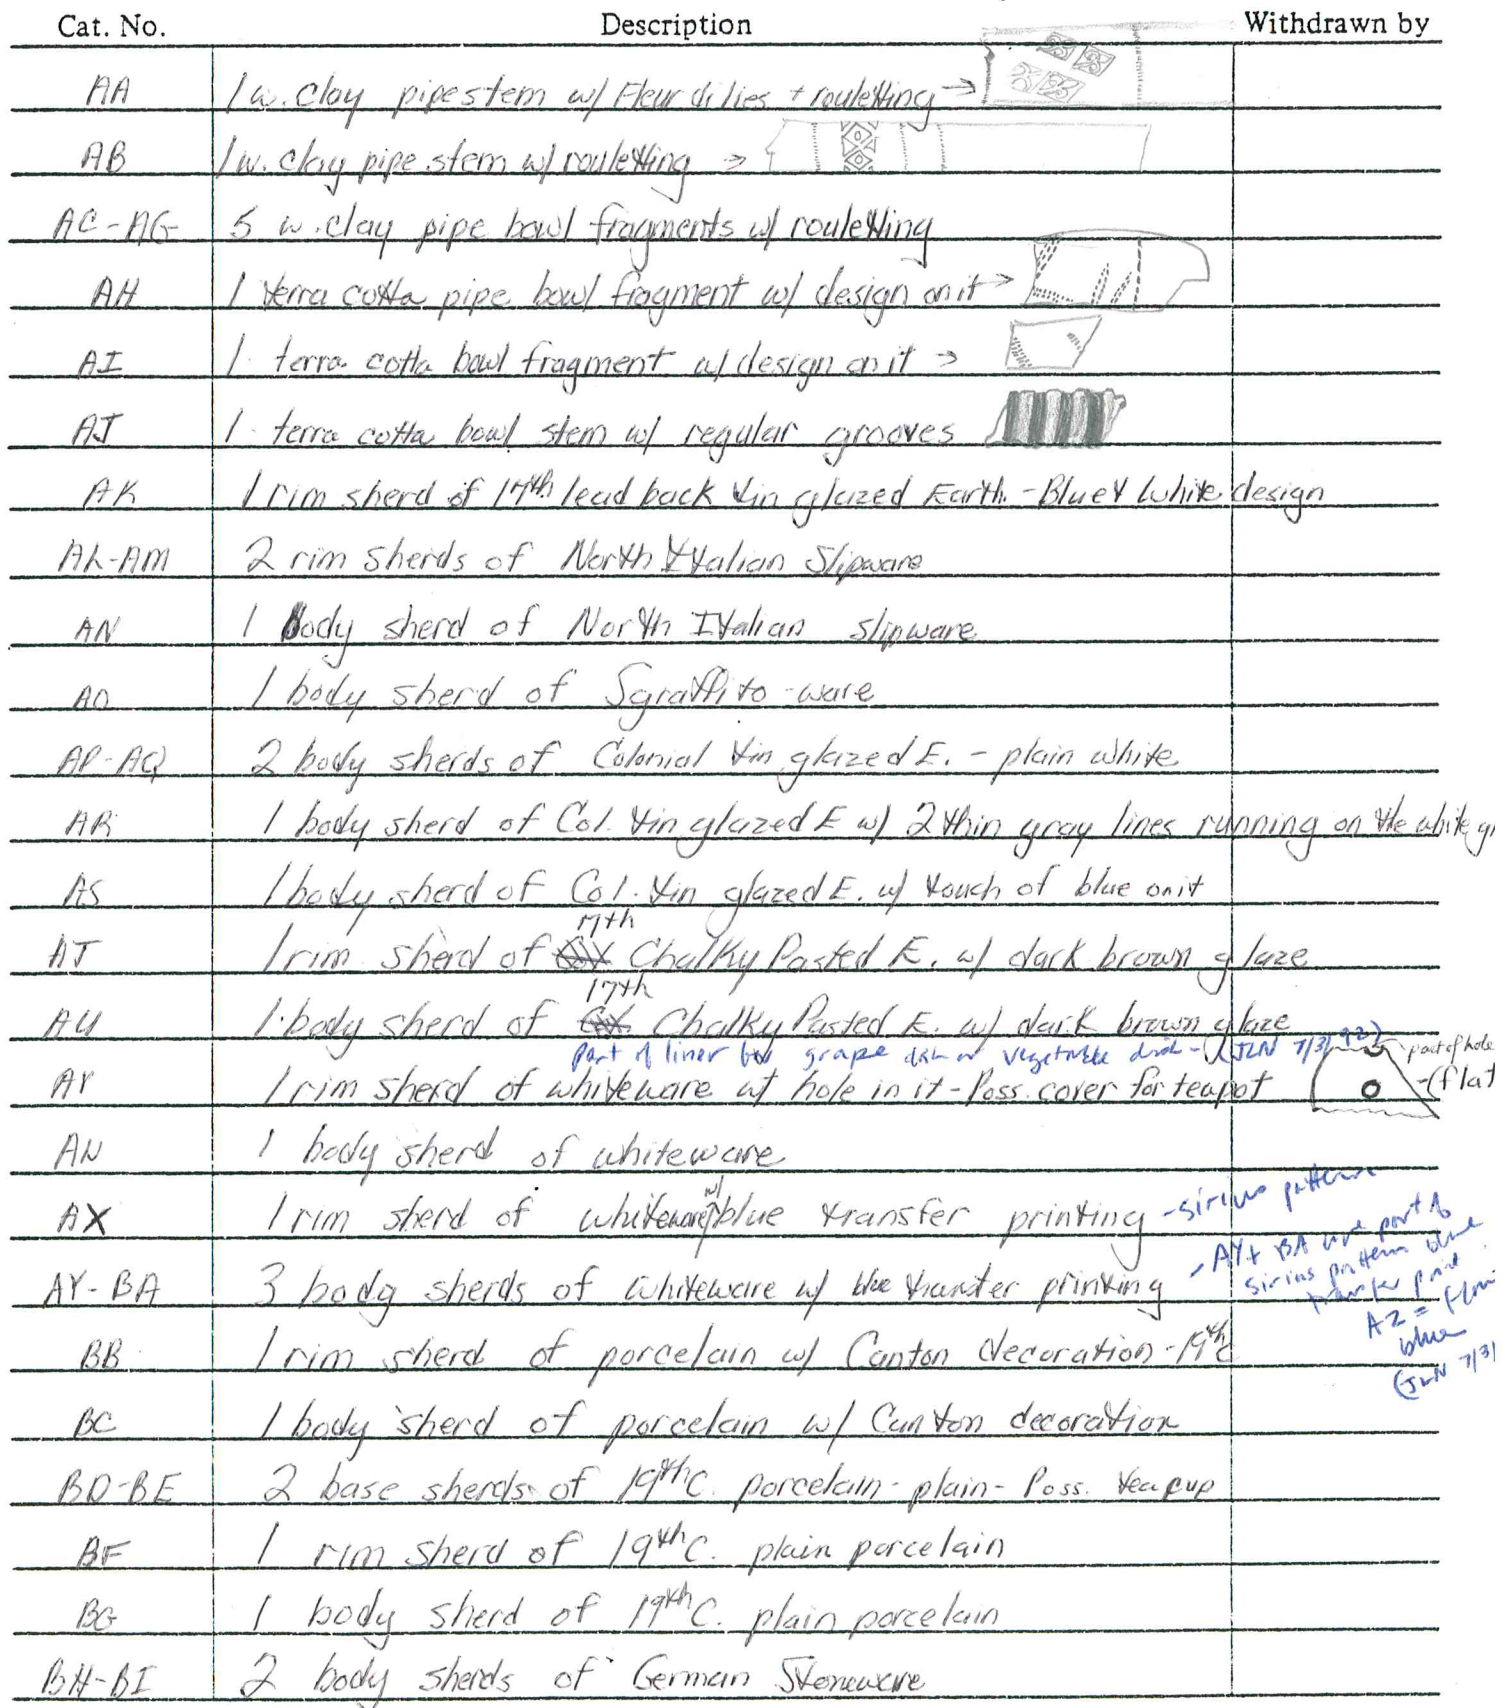 Cat. No. Description Withdrawn by
AA 1 w. clay pipe stem w/ Fleur di lies + rouletting →
AB 1 w. clay pipe stem w/ rouletting →
AC-AG 5 w. clay pipe bowl fragments w/ rouletting
AH 1 terra cotta pipe bowl fragment w/ design on it →
AI 1 terra cotta bowl fragment w/ design on it →
AJ 1 terra cotta bowl stem w/ regular grooves
AK 1 rim sherd of 17th lead back tin glazed Earth. - Blue & White design
AL-AM 2 rim sherds of North Italian Slipware
AN 1 body sherd of North Italian slipware
AO 1 body sherd of Sgraffito-ware
AP-AQ 2 body sherds of Colonial tin glazed E. - plain white
AR 1 body sherd of Col. tin glazed E w/ 2 thin gray lines running on the white
AS 1 body sherd of Col. tin glazed E. w/ touch of blue on it
17th
AT 1 rim sherd of Chalky Pasted E. w/ dark brown glaze
17th
AU 1 body sherd of Chalky Pasted E. w/ dark brown glaze
part of liner grape dish or vegetable dish - (JLN 7/31/92)
part of hole
AV 1 rim sherd of whiteware w/ hole in it - Poss. cover for teapot
(flat
AW 1 body sherd of whiteware
AX 1 rim sherd of whiteware w/ blue transfer printing - sirius pattern
AY-BA 3 body sherds of whiteware w/ blue transfer printing
- AY + BA are part of
sirius pattern blue
transfer print
AZ = flow
blue
(JLN 7/31
BB 1 rim sherd of porcelain w/ Canton decoration - 19th C
BC 1 body sherd of porcelain w/ Canton decoration
BD-BE 2 base sherds of 19th C. porcelain - plain - Poss. teacup
BF 1 rim sherd of 19th C. plain porcelain
BG 1 body sherd of 19th C. plain porcelain
BH-BI 2 body sherds of German Stoneware